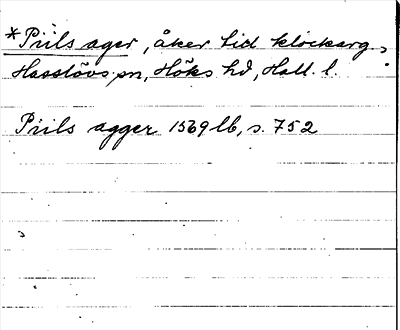 *Priils ager, åker tid klockarg.,
Hasslövs sn, Höks hd, Hall. l.
Priils agger 1569 lb, s. 752